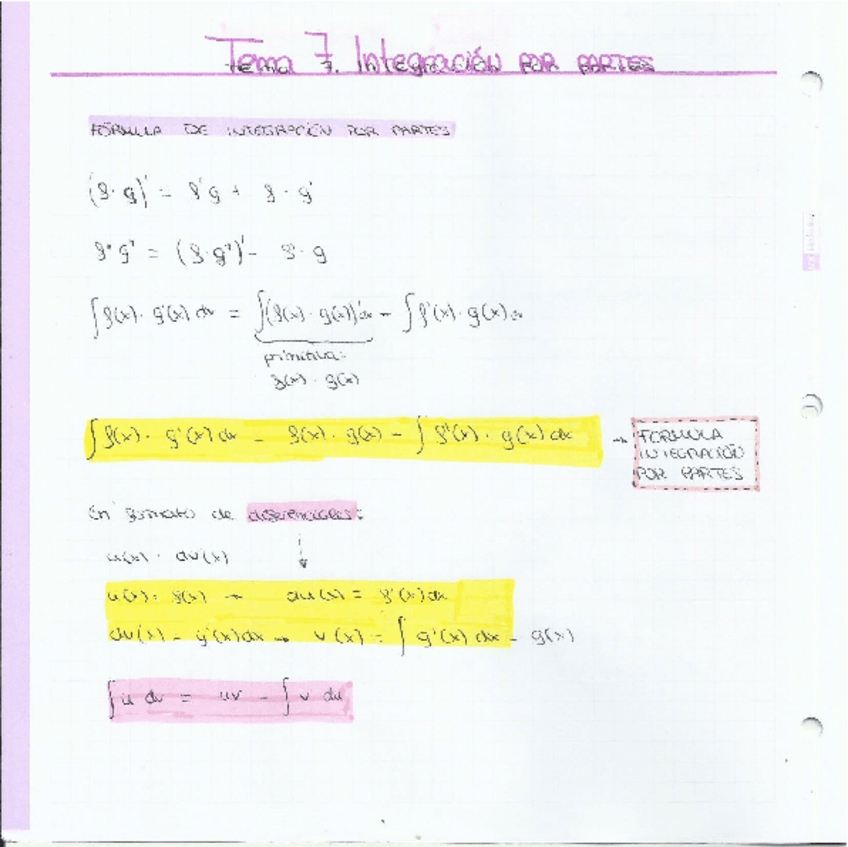 Tema 7. Integración POR PARTES
FÓRMULA DE INTEGRACIÓN POR PARTES
(f · g)' = f'g + f · g'
f · g' = (f · g)' - f' · g
∫f(x) · g'(x) dx = ∫(f(x) · g(x))'dx - ∫f'(x) · g(x) dx
primitiva:
f(x) · g(x)
∫f(x) · g'(x) dx = f(x) · g(x) - ∫f'(x) · g(x) dx → FÓRMULA
INTEGRACIÓN
POR PARTES
En formato de diferenciales:
u(x) · dv(x)
u(x) = f(x) → du(x) = f'(x)dx
dv(x) = g'(x)dx → v(x) = ∫g'(x) dx = g(x)
∫u dv = uv - ∫v du